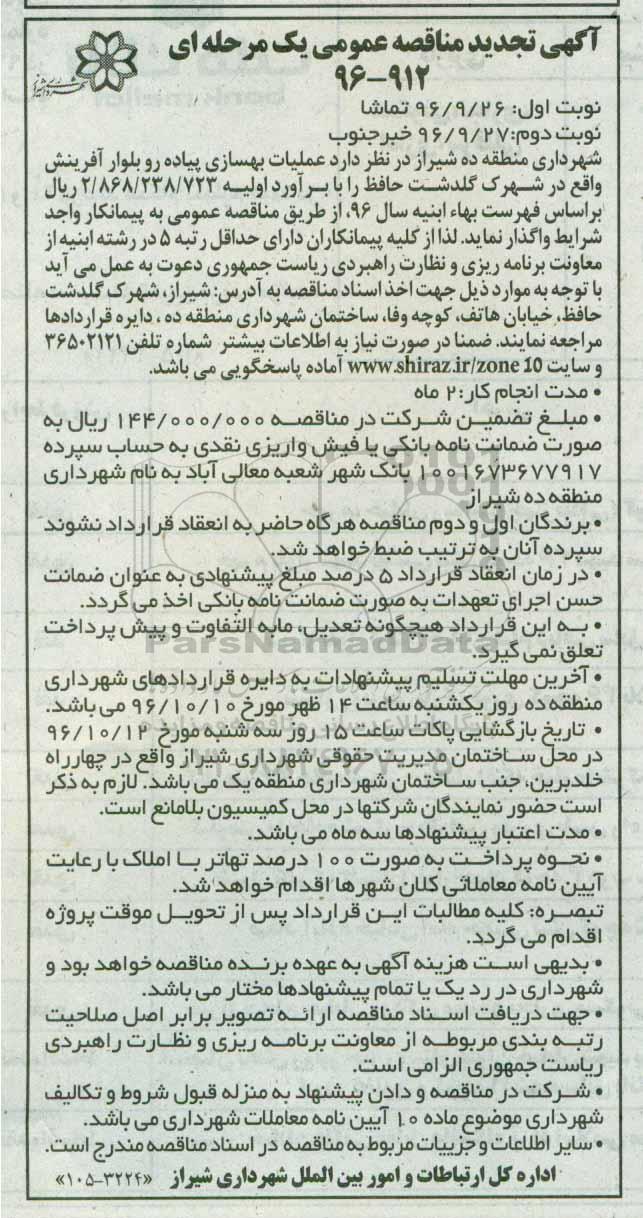 آگهی تجدید مناقصه عمومی یک مرحله ای
۹۶-۹۱۲
شهرداری شیراز
نوبت اول: ۹۶/۹/۲۶ تماشا
نوبت دوم: ۹۶/۹/۲۷ خبرجنوب
شهرداری منطقه ده شیراز در نظر دارد عملیات بهسازی پیاده رو بلوار آفرینش
واقع در شهرک گلدشت حافظ را با برآورد اولیه ۲/۸۶۸/۲۳۸/۷۲۳ ریال
براساس فهرست بهاء ابنیه سال ۹۶، از طریق مناقصه عمومی به پیمانکار واجد
شرایط واگذار نماید. لذا از کلیه پیمانکاران دارای حداقل رتبه ۵ در رشته ابنیه از
معاونت برنامه ریزی و نظارت راهبردی ریاست جمهوری دعوت به عمل می آید
با توجه به موارد ذیل جهت اخذ اسناد مناقصه به آدرس: شیراز، شهرک گلدشت
حافظ، خیابان هاتف، کوچه وفا، ساختمان شهرداری منطقه ده ، دایره قراردادها
مراجعه نمایند. ضمنا در صورت نیاز به اطلاعات بیشتر شماره تلفن ۳۶۵۰۲۱۲۱
و سایت www.shiraz.ir/zone 10 آماده پاسخگویی می باشد.
• مدت انجام کار: ۲ ماه
• مبلغ تضمین شرکت در مناقصه ۱۴۴/۰۰۰/۰۰۰ ریال به
صورت ضمانت نامه بانکی یا فیش واریزی نقدی به حساب سپرده
۱۰۰۱۶۷۳۶۷۷۹۱۷ بانک شهر شعبه معالی آباد به نام شهرداری
منطقه ده شیراز
• برندگان اول و دوم مناقصه هرگاه حاضر به انعقاد قرارداد نشوند
سپرده آنان به ترتیب ضبط خواهد شد.
• در زمان انعقاد قرارداد ۵ درصد مبلغ پیشنهادی به عنوان ضمانت
حسن اجرای تعهدات به صورت ضمانت نامه بانکی اخذ می گردد.
• به این قرارداد هیچگونه تعدیل، مابه التفاوت و پیش پرداخت
تعلق نمی گیرد.
• آخرین مهلت تسلیم پیشنهادات به دایره قراردادهای شهرداری
منطقه ده روز یکشنبه ساعت ۱۴ ظهر مورخ ۹۶/۱۰/۱۰ می باشد.
• تاریخ بازگشایی پاکات ساعت ۱۵ روز سه شنبه مورخ ۹۶/۱۰/۱۲
در محل ساختمان مدیریت حقوقی شهرداری شیراز واقع در چهارراه
خلدبرین، جنب ساختمان شهرداری منطقه یک می باشد. لازم به ذکر
است حضور نمایندگان شرکتها در محل کمیسیون بلامانع است.
• مدت اعتبار پیشنهادها سه ماه می باشد.
• نحوه پرداخت به صورت ۱۰۰ درصد تهاتر با املاک با رعایت
آیین نامه معاملاتی کلان شهرها اقدام خواهد شد.
تبصره: کلیه مطالبات این قرارداد پس از تحویل موقت پروژه
اقدام می گردد.
• بدیهی است هزینه آگهی به عهده برنده مناقصه خواهد بود و
شهرداری در رد یک یا تمام پیشنهادها مختار می باشد.
• جهت دریافت اسناد مناقصه ارائه تصویر برابر اصل صلاحیت
رتبه بندی مربوطه از معاونت برنامه ریزی و نظارت راهبردی
ریاست جمهوری الزامی است.
• شرکت در مناقصه و دادن پیشنهاد به منزله قبول شروط و تکالیف
شهرداری موضوع ماده ۱۰ آیین نامه معاملات شهرداری می باشد.
• سایر اطلاعات و جزییات مربوط به مناقصه در اسناد مناقصه مندرج است.
اداره کل ارتباطات و امور بین الملل شهرداری شیراز «۱۰۵-۳۲۲۴»
ParsNamadData